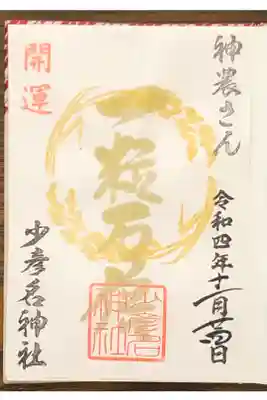 神農さん
令和四年十一月廿四日
一粒万倍
開運
少彦名神社
少彦名神社